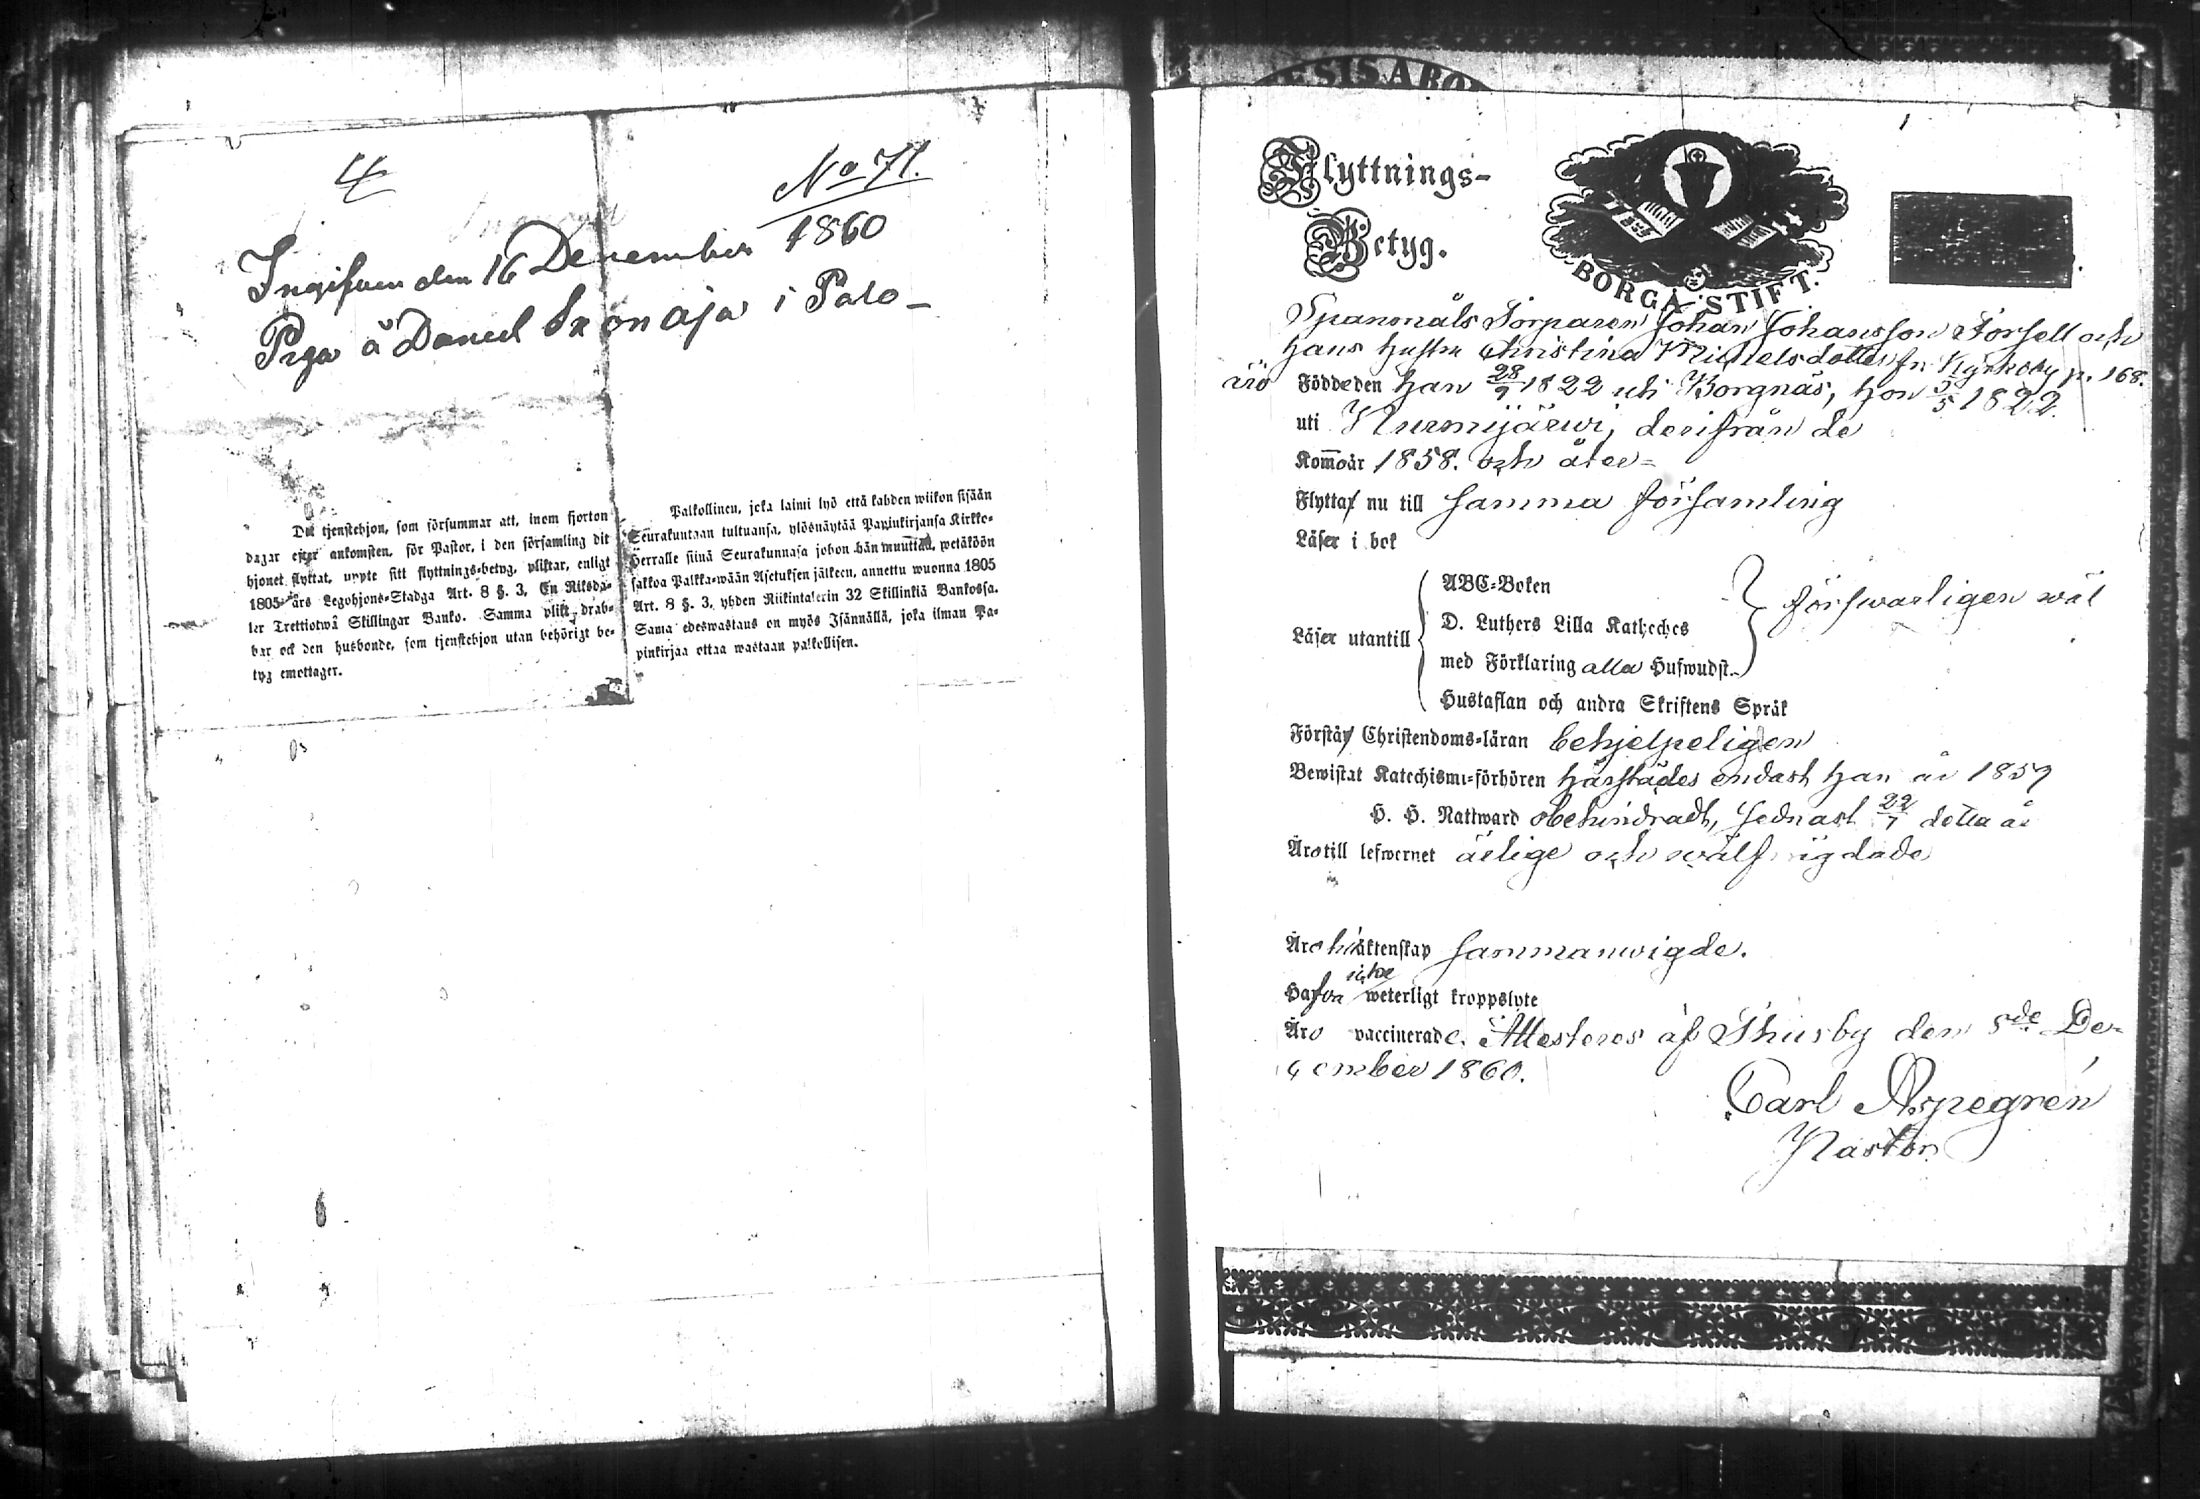 4
No 71.
Ingifven den 16 December 1860
i Palo-
Det tjenstehjon, som försummar att, inom fjorton
dagar efter ankomsten, för Pastor, i den församling dit
hjonet flyttat, uppte sitt flyttnings-betyg, pliktar, enligt
1805 års Legohjons-Stadga Art. 8 §. 3, En Riksda-
ler Trettiotwå Skillingar Banko. Samma plikt drab-
bar ock den husbonde, som tjenstehjon utan behörigt be-
tyg emottager.
Palkollinen, joka laimi lyö että kahden wiikon sisään
Seurakuntaan tultuansa, ylösnäytää Papinkirjansa Kirkko-
Herralle siinä Seurakunnasa johon hän muuttaa, wetäköön
sakkoa Palkka-wään Asetuksen jälkeen, annettu wuonna 1805
Art. 8 §. 3, yhden Riikintalerin 32 Skillinkiä Bankossa.
Sama edeswastaus on myös Isännällä, joka ilman Pa-
pinkirjaa ottaa wastaan palkollisen.
ESIS ABO
Flyttnings-
Betyg.
BORGÅ STIFT.
Torparen Johan Johansson Forsell och
hans hustru Christina Michelsdotter fr. Kyrkoby p. 168.
äro Födde den han 28/9 1822 uti Borgnäs, hon 5/5 1822
uti Nurmijärwi, derifrån de
Kommo år 1858. och åter-
Flytta nu till samma församling
Läser i bok
Läser utantill
ABC-Boken
D. Luthers Lilla Katheches
med Förklaring alla Hufwudst.
Hustaflan och andra Skriftens Språk
förswarligen wäl
Förstå Christendoms-läran behjelpeligen
Bewistat Katechismi-förhören härstädes endast han år 1859
H. H. Nattward obehindradt, sednast 22/7 detta år
Äro till lefwernet ärlige och wälfrägdade
Äro i äktenskap sammanwigde.
Hafva icke weterligt kroppslyte
Äro vaccinerade. Attesteres af Thusby den 5de De-
cember 1860.
Carl Aspegrén
Pastor